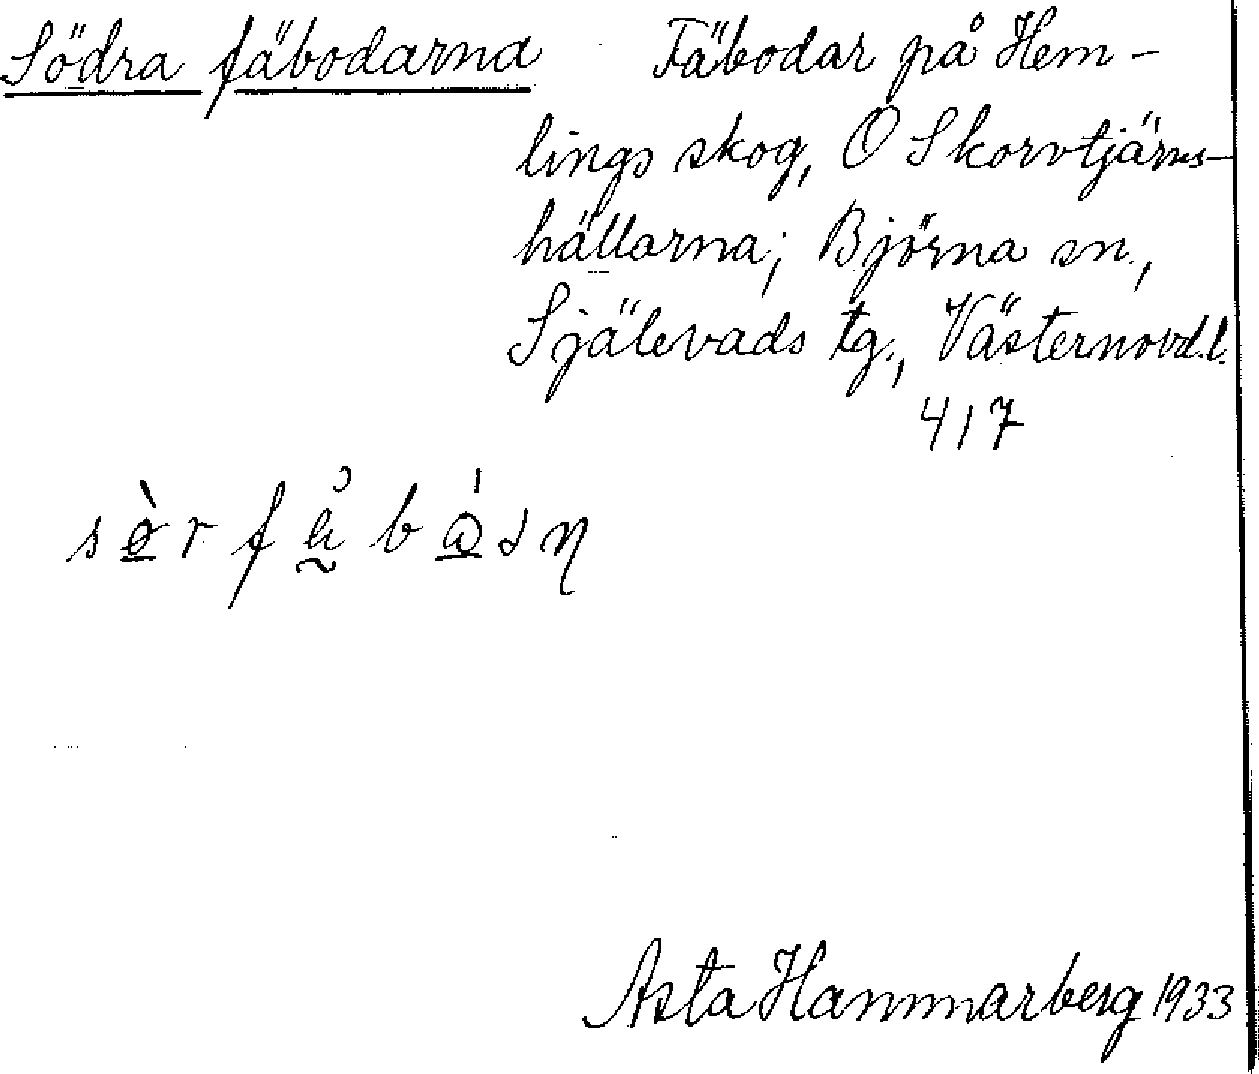 Södra fäbodarna Fäbodar på Hem-
lings skog, O Skorvtjärns-
hällarna; Björna sn.,
Själevads tg., Västernorrl. l.
417
Asta Hammarberg 1933